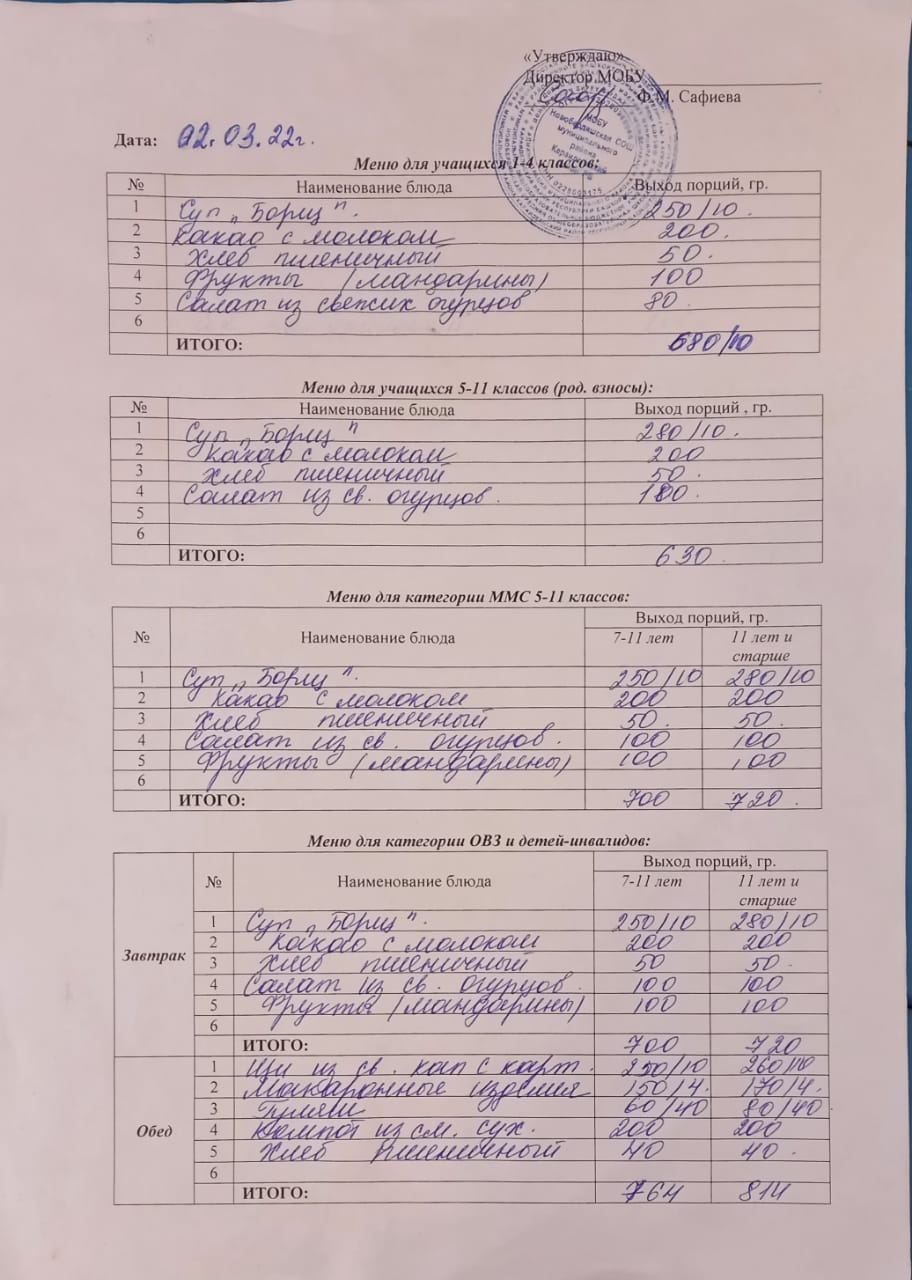 «Утверждаю»
Директор МОБУ
Ф.М. Сафиева
МОБУ
Новобердяшская СОШ
муниципального
района
Дата: 02.03.22г.
Меню для учащихся 1-4 классов:
№ Наименование блюда Выход порций, гр.
1 Суп „Борщ". 250/10.
2 Какао с молоком 200.
3 Хлеб пшеничный 50.
4 Фрукты (мандарины) 100
5 Салат из свежих огурцов 80.
6
ИТОГО: 680/10
Меню для учащихся 5-11 классов (род. взносы):
№ Наименование блюда Выход порций , гр.
1 Суп „Борщ" 280/10.
2 Какао с молоком 200
3 Хлеб пшеничный 50.
4 Салат из св. огурцов. 100.
5
6
ИТОГО: 630.
Меню для категории ММС 5-11 классов:
№ Наименование блюда Выход порций, гр.
7-11 лет 11 лет и
старше
1 Суп „Борщ". 250/10 280/10
2 Какао с молоком 200 200
3 Хлеб пшеничный 50. 50.
4 Салат из св. огурцов. 100 100
5 Фрукты (мандарины) 100 100
6
ИТОГО: 700 720.
Меню для категории ОВЗ и детей-инвалидов:
№ Наименование блюда Выход порций, гр.
7-11 лет 11 лет и
старше
Завтрак
1 Суп „Борщ". 250/10 280/10
2 Какао с молоком 200 200
3 Хлеб пшеничный 50 50.
4 Салат из св. огурцов. 100 100
5 Фрукты (мандарины) 100 100
6
ИТОГО: 700 720
Обед
1 Щи из св. кап с карт. 250/10 260/10
2 Макаронные изделия 150/4. 170/4.
3 Гуляш 60/40 80/40.
4 Компот из см. сух. 200 200
5 Хлеб пшеничный 40 40.
6
ИТОГО: 764 814